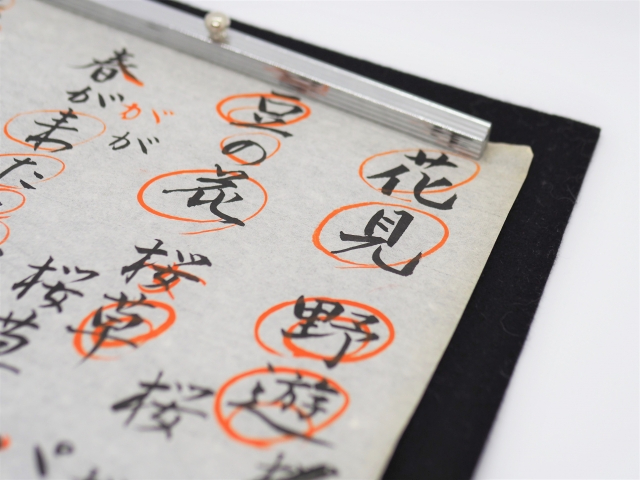 花見
野遊
豆の花
桜草
桜
春が
が
が
た
桜
草